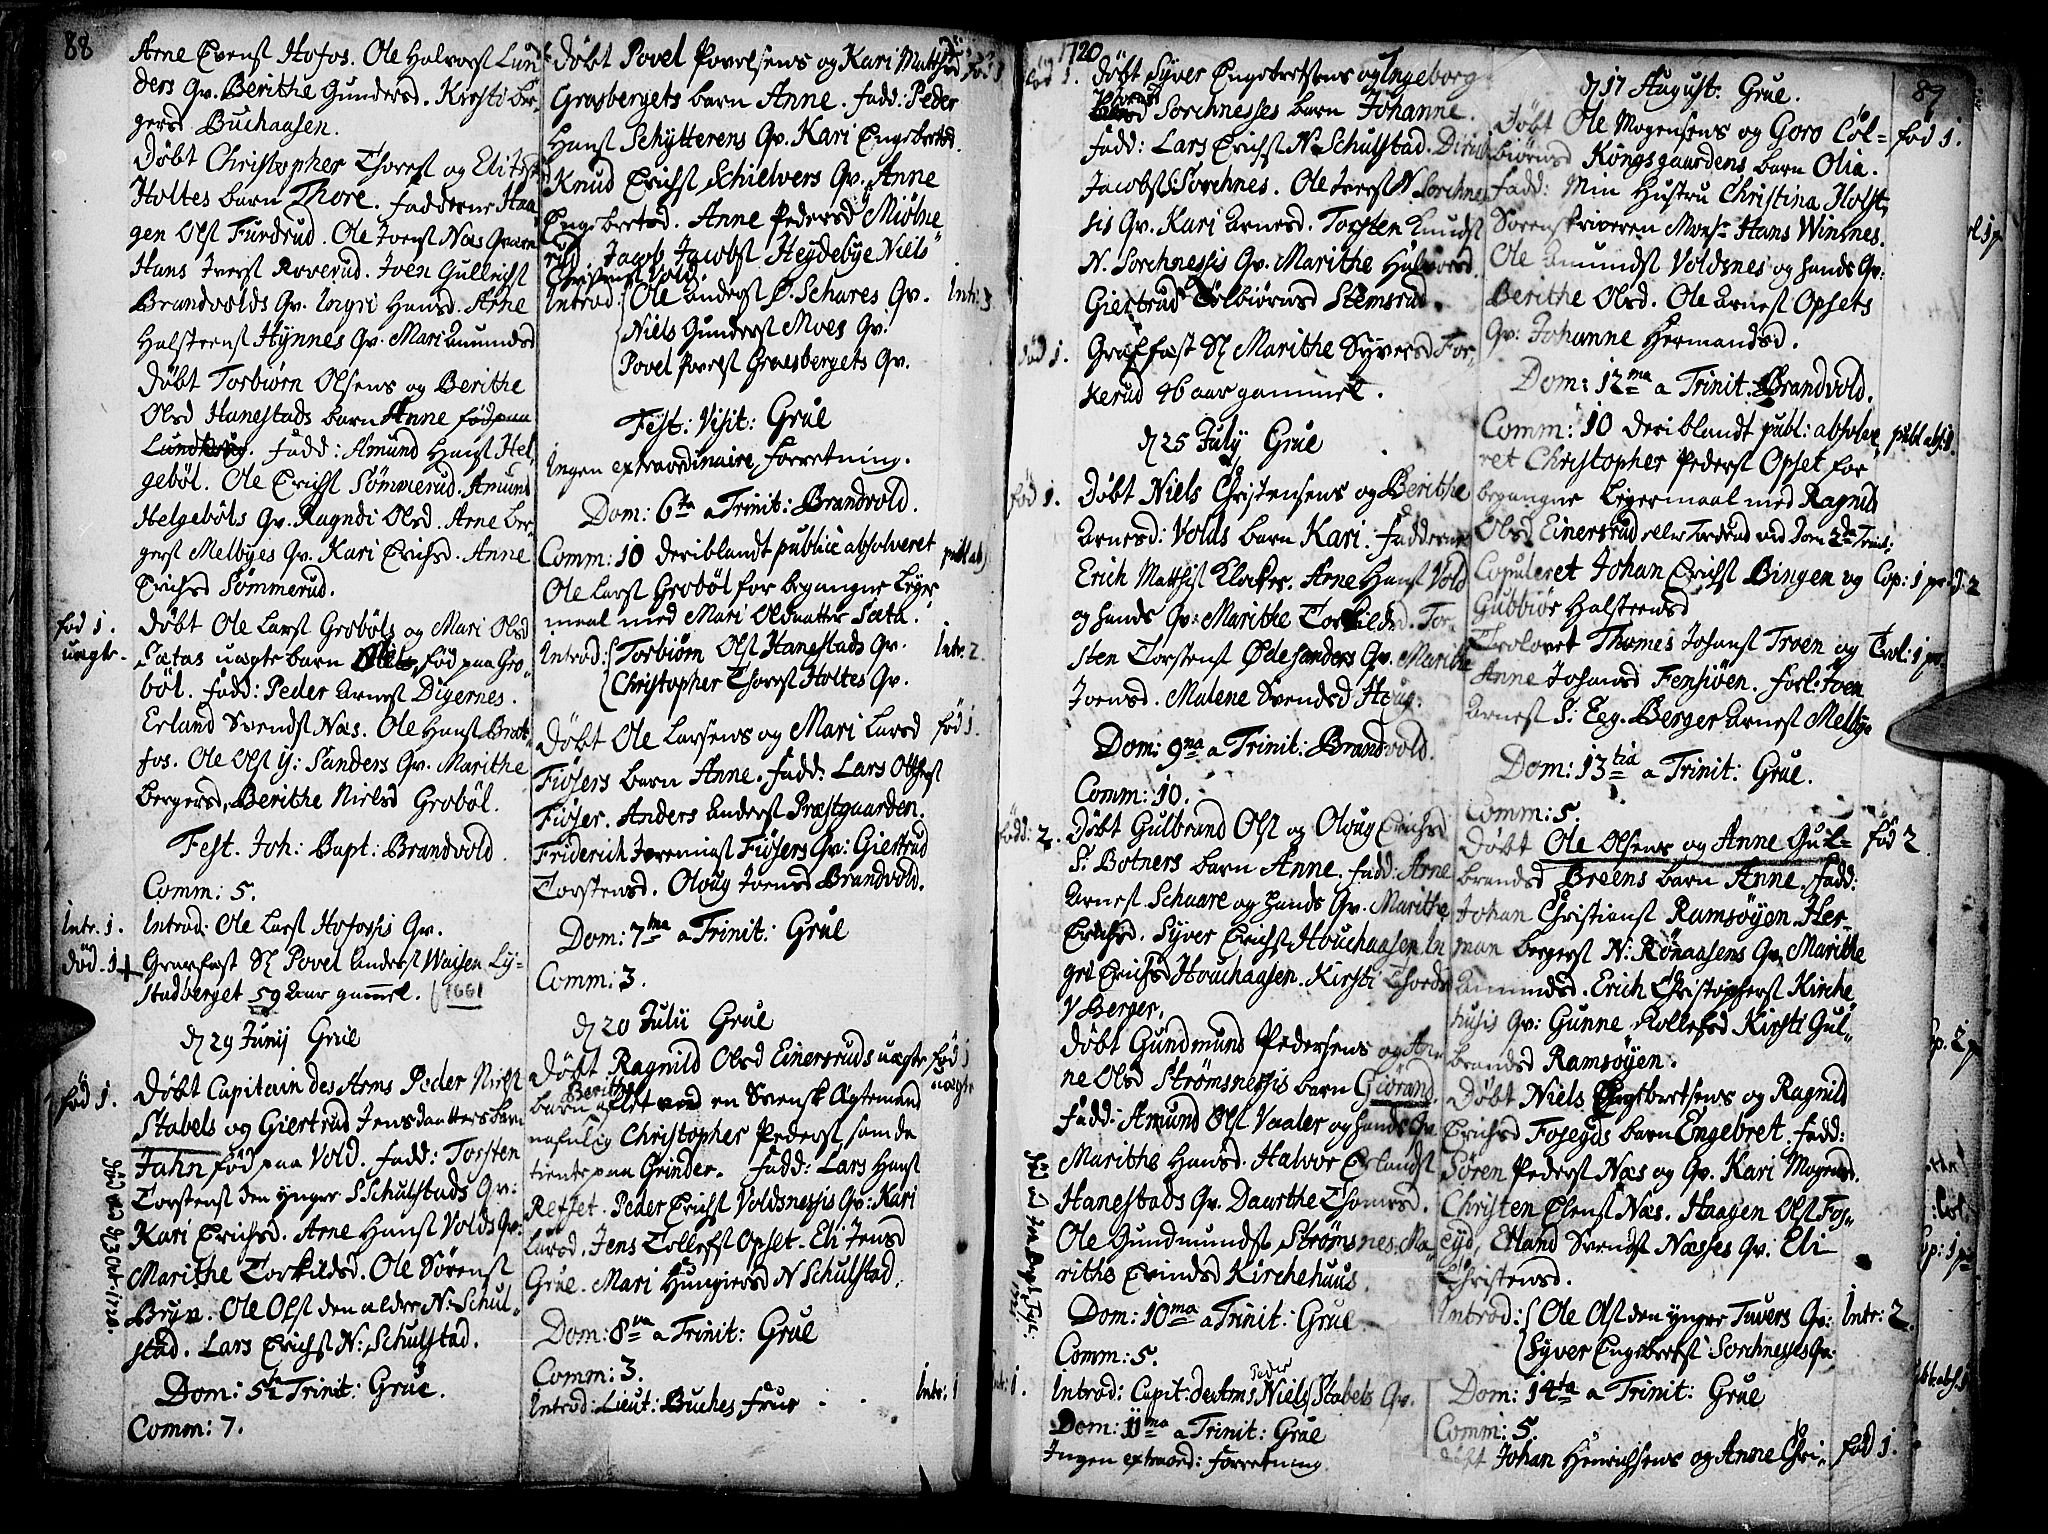 88
Arne Evenst Hofos. Ole Halvorst Lun
ders Qv. Berithe Gundersd. Kirsti Ber-
gersd Buchaasen.
Döbt Christopher Thorest og Eli
Holtes barn Thore. Fadderne Haa-
gen Olst Furdrud. Ole Joenst Næs Qværn
Hans Iverst Roverud. Joen Gullichst
Brandvolds Qv. Ingri Hansd. Arne
Halsteenst Hynnes Qv. Mari Amundsd
Döbt Torbiörn Olsens og Berithe
Olsd Hanestads barn Anne födpaa
Lundkrug. Fadd: Amund Hanst Hel-
geböl. Ole Erichst Sömmerud. Amund
Helgeböls Qv. Ragndi Olsd. Arne Ber-
gerst Melbyes Qv. Kari Erichsd. Anne
Erichsd Sömmerud.
föd 1.
uægte.
Döbt Ole Larst Groböls og Mari Olsd
Sætas uægte barn föd paa Gro-
böl. Fadd: Peder Arnest Digernes.
Erland Svendst Næs. Ole Hanst Brat-
fos. Ole Olst Y: Sanders Qv. Marithe
Bergersd. Berithe Nielsd Groböl.
Fest. Joh: Bapt: Brandvold.
Comm: 5.
Intr. 1.
Introd: Ole Larst Hofossis Qv.
död. 1
Græfæst Sl Povel Anderst Waisen Ly-
Stadberget 59 Aar gam̄el. 1661
d 29 Junij Grue
föd 1.
Döbt Capitain des Arms Peder Nielst
Stabels og Giertrud Jensdaatters barn
Jahn föd paa Vold. Fadd: Torsten
Torstenst den ynger S Schulstads Qv:
Kari Erichsd. Arne Hanst Volds Qv:
Marithe Torkildsd. Ole Sörenst
Bruv. Ole Olst den aldre N: Schul-
stad. Lars Erichst N: Schulstad.
Dom: 5ta Trinit: Grue.
Comm: 7.
Döbt Povel Povelsens og Kari Matthisd
föd 1
Grasbergets barn Anne. Fadd: Peder
Hanst Schytterens Qv. Kari Engebretsd.
Knud Erichst Schielvers Qv. Anne
Engebretsd. Anne Pedersd Miölne
rud. Jacob Jacobst Heydebye Niels
Christenst Vold.
Introd: Ole Anderst Ö. Schares Qv.
Intr: 3
Niels Gunderst Moes Qv:
Povel Povelst Graesbergets Qv.
Fest: Visit: Grue
Ingen extraordinaire Forretning.
Dom: 6ta a Trinit: Brandvold.
Comm: 10 deriblandt publicè absolveret
publ ab)
Ole Larst Groböl for begangne Leyer
maal med Mari Olsdaatter Sæta.
Introd: Torbiörn Olst Hanestads Qv.
Intr: 2.
Christopher Thorest Holtes Qv.
Döbt Ole Larsens og Mari Larsd
föd 1.
Fiösers barn Anne. Fadd: Lars
Fiöser. Anders Anderst Præstgaarden.
Friderich Jeremiæst Fiösers Qv: Giertrud
Torstensd. Oloug Joensd Brandvold.
Dom: 7ma a Trinit: Grue
Comm: 3.
d 20 Julii Grue
Döbt Ragnild Olsd Einersruds uægte
föd 1
uægte
barn Berithe aflet ved en Svensk Ægtemand
nafnlig Christopher Pederst, som da
tiente paa Grinder. Fadd: Lars Hanst
Refset. Peder Erichst Voldsnessis Qv: Kari
Larsd. Jens Tollefst Opset. Eli Jensd
Grue. Mari Hungiersd N Schulstad.
Dom: 8va a Trinit: Grue
Comm: 3.
Introd: Lieut: Buches Frue
Intr: 1
1720
föd 1.
Döbt Syver Engebretsens og Ingeborg
Sorchnesses barn Johanne.
Fadd: Lars Erichst N. Schulstad.
Jacobst Sorchnes. Ole Iverst N Sorchne
sis Qv. Kari Arnesd. Torsten Knudst
N. Sorchnessis Qv. Marithe Halvorsd.
Giertrud Tolbiörnsd Stemsrud.
död 1.
Græffæst Sl Marithe Syversd For-
kerud 46 aar gammel.
d 25 Julij Grue
föd 1.
Döbt Niels Christensens og Berithe
Arnesd: Volds barn Kari. Fadderne
Erich Matthist Klocker. Arne Hanst Vold
og hands Qv: Marithe Torkildsd. Tor-
sten Torstenst Ödesanders Qv. Marithe
Joensd. Malene Svendsd Houg.
Dom: 9na a Trinit: Brandvold.
Comm: 10.
född: 2.
Döbt Gulbrand Olst og Oloug Erichsd
S. Botners barn Anne. Fadd: Arne
Arnest Schaare og hands Qv. Marithe
Erichsd. Syver Erichst Houchaasen. In
gri Erichsd Houchaasen. Kirsti Thordsd
V Berger.
Döbt Gundmund Pedersens og An-
ne Olsd Strömsnessis barn Giörand.
Fadd: Amund Olst Vaaler og hands Qv
Marithe Hansd. Halvor Erlandst
Hanestads Qv. Daarthe Thomesd.
Ole Gundmundst Strömsnes. Ma-
rithe Evindsd Kirchehuus.
Dom: 10ma a Trinit: Grue
Comm: 5.
Introd: Capit: de Arms Peder Niels Stabels Qv.
Intr: 1.
Dom: 11ma a Trinit: Grue
Ingen extraord: Forretning
89
d 17 August: Grue.
Döbt Ole Mogensens og Goro Cöl-
föd 1.
biörnsd Kongsgaardens barn Olia.
Fadd: Min Hustru Christina Holst,
Sorenskriveren Monsr Hans Winnes.
Ole Amundst Voldsnes og hands Qv:
Berithe Olsd. Ole Arnest Opsets
Qv: Johanne Hermandsd.
Dom: 12ma a Trinit: Brandvold.
Comm: 10 deriblandt publ: absolve
publ abs: 1.
ret Christopher Pederst Opset for
begangne Leyermaal med Ragnild
Olsd Einersrud eller Tordrud vid Dom 2da Trinit:
Copuleret Johan Erichst Bingen og
Cop: 1 pr.
Gubbiör Halsteensd
Trolovet Thomes Johanst Troen og
Trol: 1 pr.
Anne Johansd Fensiöen. Forl: Joen
Arnest S: Eeg. Berger Arnest Melbye
Dom: 13tia a Trinit: Grue.
Comm: 5.
Döbt Ole Olsens og Anne Gul-
föd 2
brandsd Breens barn Anne. Fadd:
Johan Christianst Ramsöyen. Her-
man Bergerst N: Rönaasens Qv. Marithe
Amundsd. Erich Christopherst Kirche-
husis Qv: Gunne Rollefsd Kirsti Gul-
brandsd Ramsöyen.
Döbt Niels Engebretsens og Ragnild
Erichsd Foseyds barn Engebret. Fadd:
Sören Pederst Næs og Qv. Kari Mognsd.
Christen Elenst Næs. Haagen Olst Fos-
eyd, Erland Svendst Næsses Qv. Eli
Christensd.
Introd: Ole Olst den yngre Tuvers Qv:
Intr: 2.
Syver Engebretst Sorchnesses Qv:
Dom: 14ta a Trinit: Grue
Comm: 5.
Döbt Johan Henrichsens og Anne Chri-
föd 1.